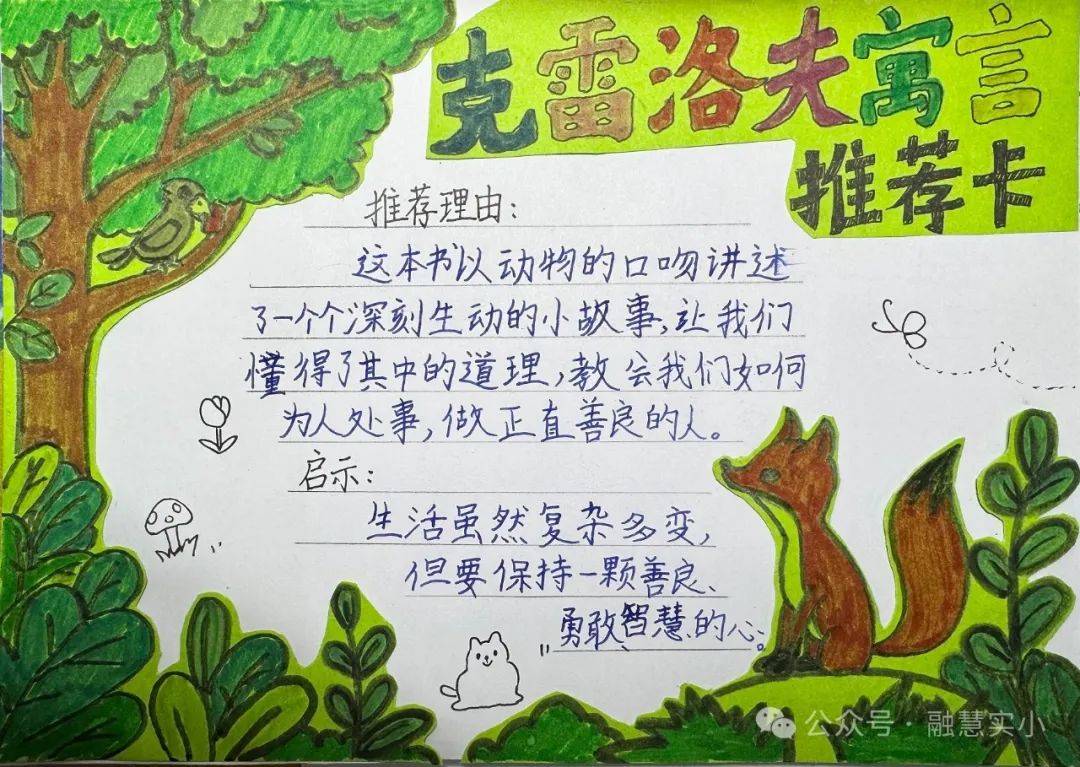 克雷洛夫寓言
推荐卡
推荐理由：
这本书以动物的口吻讲述
了一个个深刻生动的小故事，让我们
懂得了其中的道理，教会我们如何
为人处事，做正直善良的人。
启示：
生活虽然复杂多变，
但要保持一颗善良、
勇敢、智慧的心。
公众号·融慧实小